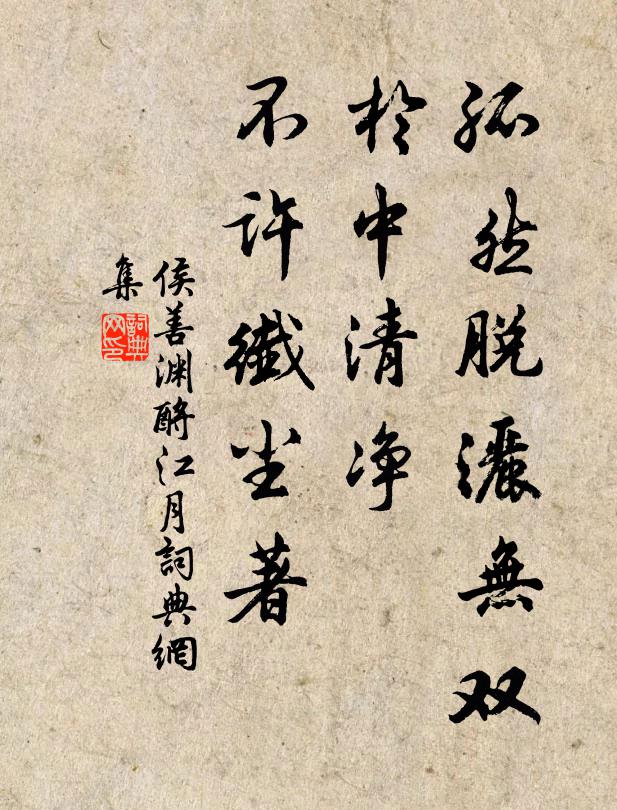 孤然脱灑無双
於中清净
不许纖尘著
侯善渊酹江月詞典網
集
詞典
网印